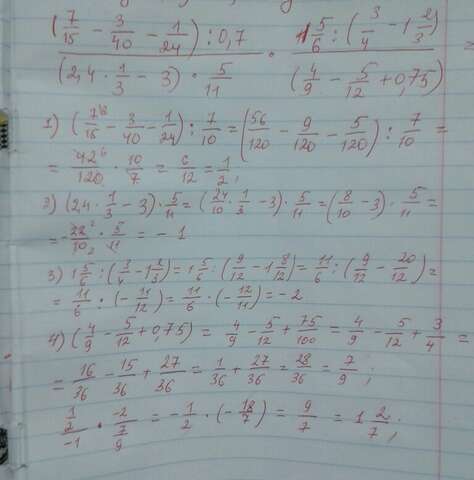 (7/15 - 3/40 - 1/24) : 0,7 / (2,4 · 1/3 - 3) · 5/11 · 1 5/6 : (3/4 - 1 2/3) / (4/9 - 5/12 + 0,75) =
1) (7/15 - 3/40 - 1/24) : 7/10 = (56/120 - 9/120 - 5/120) : 7/10 =
= 42/120 · 10/7 = 6/12 = 1/2 ;
2) (2,4 · 1/3 - 3) · 5/11 = (24/10 · 1/3 - 3) · 5/11 = (8/10 - 3) · 5/11 =
= - 22/10 · 5/11 = - 1
3) 1 5/6 : (3/4 - 1 2/3) = 1 5/6 : (9/12 - 1 8/12) = 11/6 : (9/12 - 20/12) =
= 11/6 : (- 11/12) = 11/6 · (- 12/11) = - 2
4) (4/9 - 5/12 + 0,75) = 4/9 - 5/12 + 75/100 = 4/9 - 5/12 + 3/4 =
= 16/36 - 15/36 + 27/36 = 1/36 + 27/36 = 28/36 = 7/9 ;
1/2 / -1 · -2 / 7/9 = - 1/2 · (- 18/7) = 9/7 = 1 2/7 ;